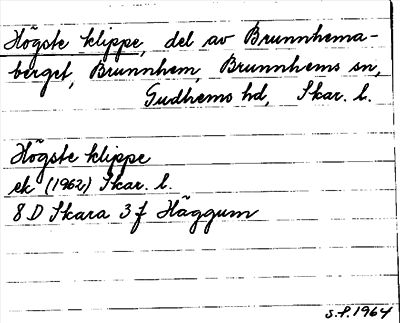 Högste klippe, del av Brunnhema-
berget, Brunnhem, Brunnhems sn,
Gudhems hd, Skar. l.
Högste klippe
ek (1962) Skar. l.
8 D Skara 3 f Häggum
s.f. 1964